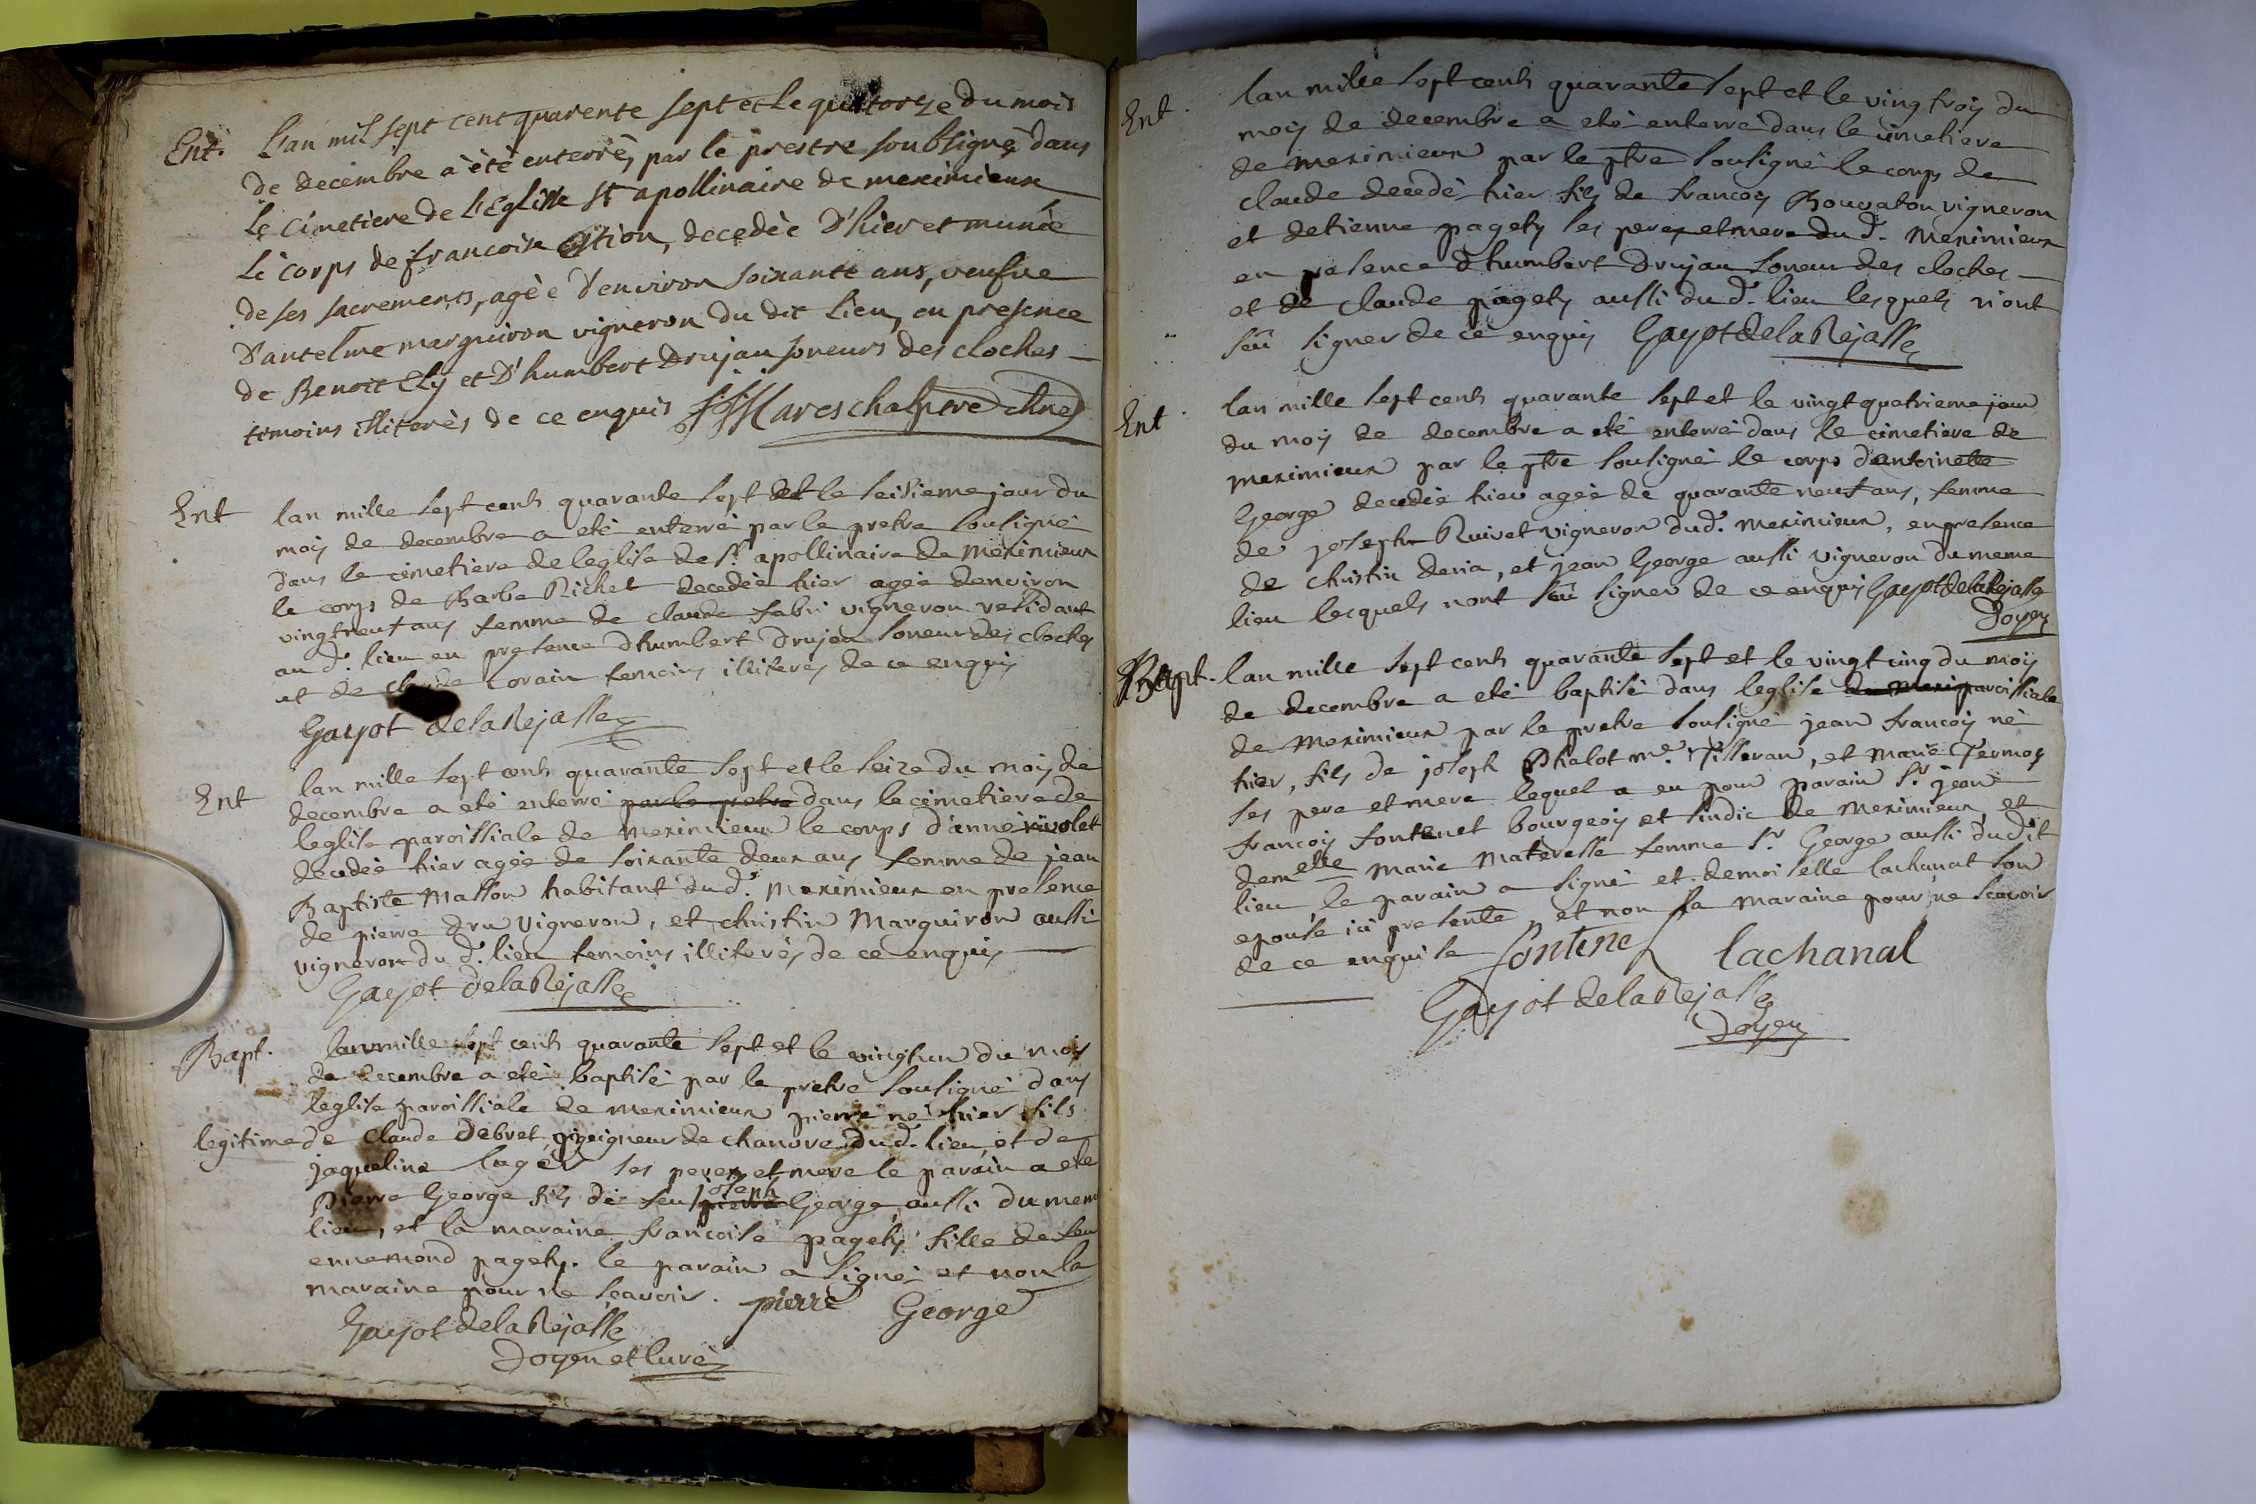 Ent. L'an mil sept cent quarente sept et le quatorze du mois
de decembre a èté enterré, par le prestre soubsigné, dans
le cimetiere de l'Eglise St apollinaire de meximieux
le corps de francoise Ation, decedèe D'hier et munie
de ses sacrements, agèe d'environ soixante ans, veufve
D'antelme marguiron vigneron du dit lieu, en presence
de Benoit Ely et D'humbert Drujan soneurs des cloches
temoins illiterès de ce enquis Mareschal ptre chne
Ent lan mille sept cents quarante sept et le seisieme jour du
mois de decembre a eté enterré par le pretre sousigné
dans le cimetiere de leglise de St. apollinaire de Meximieux
le corps de Barbe Richet decedèe hier agèe denviron
vingtneuf ans femme de claude fabri vigneron residant
au d. lieu en presence dhumbert drujan soneur des cloches
et de claude Lorain temoins illiterés de ce enquis
Gayot delaRejasse
Ent lan mille sept cents quarante sept et le seize du mois de
decembre a eté enterré par le pretre dans le cimetiere de
leglise paroissiale de meximieux le corps d'anne rivolet
decedèe hier agèe de soixante deux ans femme de jean
Baptiste Masson habitant du d. Meximieux en presence
de pierre dru vigneron, et christin Marguiron aussi
vigneron du d. lieu temoins illiterés de ce enquis
Gayot delaRejasse
Bapt. lan mille sept cents quarante sept et le vingtun du mois
de decembre a eté baptisé par le pretre sousigné dans
leglise paroissiale de meximieux pierre né hier fils
legitime de Claude Debret, peigneur de chanvre du d. lieu, et de
jaqueline lager ses peres et mere le parain a eté
Pierre George fils de feu joseph pierre George aussi du meme
lieu, et la maraine francoise pagety fille de feu
ennemond pagety. le parain a signé et non la
maraine pour ne scavoir. pierre George
Gayot delaRejasse
Doyen et curé
Ent. lan mille sept cents quarante sept et le vingtrois du
mois de decembre a eté enterré dans le cimetiere
de meximieux par le ptre sousigné le corps de
claude decedé hier fils de francois Bouvaton vigneron
et detienne pagety ses peres et mere du d. Meximieux
en presence dhumbert Drujan soneur des cloches
et de claude pagety aussi du d. lieu lesquels n'ont
sçû signer de ce enquis Gayot delaRejasse
Ent lan mille sept cents quarante sept et le vingt quatrieme jour
du mois de decembre a eté enterré dans le cimetiere de
meximieux par le ptre sousigné le corps dantoinette
George decedèe hier agèe de quarante neuf ans, femme
de joseph Ruivet vigneron dud. Meximieux, en presence
de christin deria, et jean George aussi vigneron du meme
lieu lesquels nont sçû signer de ce enquis Gayot delaRejasse
Doyen
Bapt. lan mille sept cents quarante sept et le vingt cinq du mois
de decembre a eté baptisé dans leglise de Mexi paroissiale
de Meximieux par le pretre sousigné jean francois né
hier, fils de joseph Chalot me. Tisseran, et Marie Fermog
ses pere et mere lequel a eu pour parain Sr. jean
francois fontenet bourgeois et sindic de Meximieux et
demelle Marie Materesse femme Sr. George aussi dudit
lieu le parain a signé et demoiselle lachanat son
epouse ici presente, et non la maraine pour ne scavoir
de ce enquise fontenet lachanal
Gayot delaRejasse
Doyen